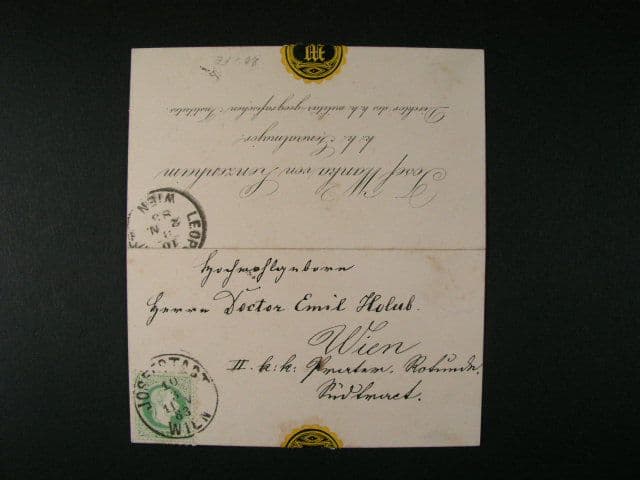 Josef Wanka von Lenzenheim
k. k. Generalmajor
Direktor des k. k. militär-geografischen Institutes.
LEOP
WIEN
Hochwohlgeborn
Herrn Doctor Emil Holub.
Wien
II. k: k: Prater, Rotunde,
Südtract.
JOSEFSTADT
10
11
83
WIEN